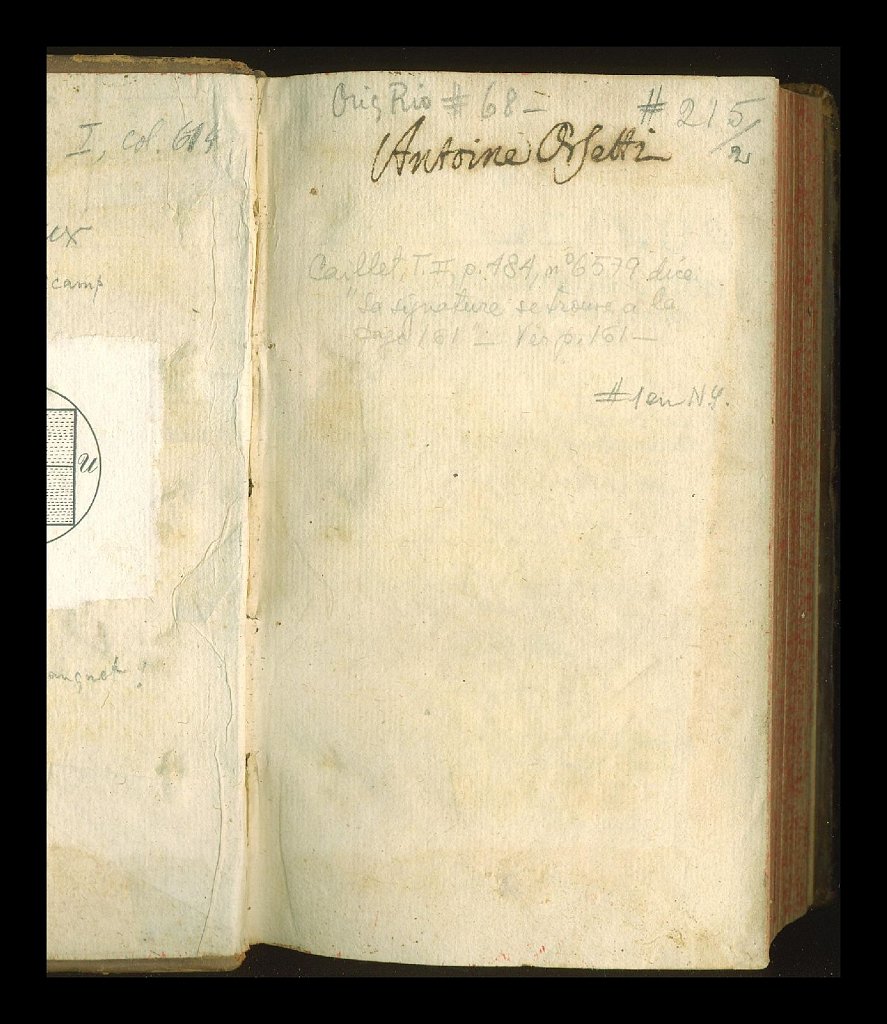 I, col. 614
ex
camp
u
Orig Rio # 68 –
# 215/2
Antoine Orsetti
Caillet, T. II, p. 484, nº 6579 dice
"Sa signature se trouve a la
page 161" – Ver p. 161 –
# 1 en N.Y.